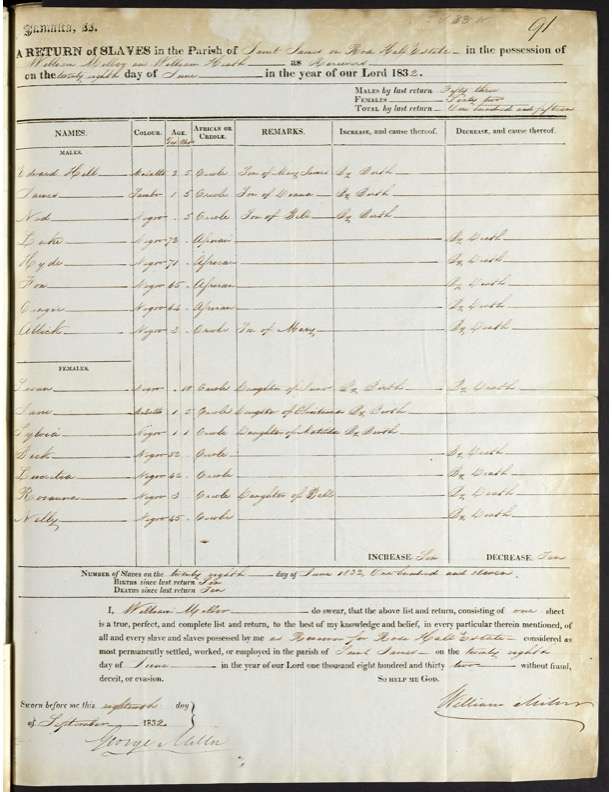 Jamaica, SS.
91
A RETURN of SLAVES in the Parish of Saint James on Rose Hall Estate in the possession of
William as Receivers
on the twenty eighth day of June in the year of our Lord 1832.
MALES by last return Fifty three
FEMALES Sixty two
TOTAL by last return One hundred and fifteen
NAMES. COLOUR. AGE. AFRICAN or CREOLE. REMARKS. INCREASE, and cause thereof. DECREASE, and cause thereof.
MALES.
Edward Hill Mulatto 2 5 Creole Son of Mary James By Birth
James 1 5 Creole Son of By Birth
Ned Negro 5 Creole Son of Bell By Birth
Negro 72 African By Death
Hyde Negro 71 African By Death
Negro 65 African By Death
Negro 64 African By Death
Negro 3 Creole Son of Mary By Death
FEMALES.
Susan Negro Creole Daughter of By Birth By Death
Jane Mulatto 1 5 Creole Daughter of By Birth
Sylvia Negro 1 1 Creole Daughter of Matilda By Birth
Negro 52 Creole By Death
Lucretia Negro 42 Creole By Death
Rosanna Negro 3 Creole Daughter of Bell By Death
Nelly Negro 45 Creole By Death
INCREASE Six DECREASE Ten
NUMBER of Slaves on the twenty eighth day of June 1832 One hundred and eleven
BIRTHS since last return Six
DEATHS since last return Ten
I, William do swear, that the above list and return, consisting of one sheet
is a true, perfect, and complete list and return, to the best of my knowledge and belief, in every particular therein mentioned, of
all and every slave and slaves possessed by me as Receiver for Rose Hall Estate considered as
most permanently settled, worked, or employed in the parish of Saint James on the twenty eighth
day of June in the year of our Lord one thousand eight hundred and thirty two without fraud,
deceit, or evasion. SO HELP ME GOD.
William Miller
Sworn before me this day
of September 1832
George Miller